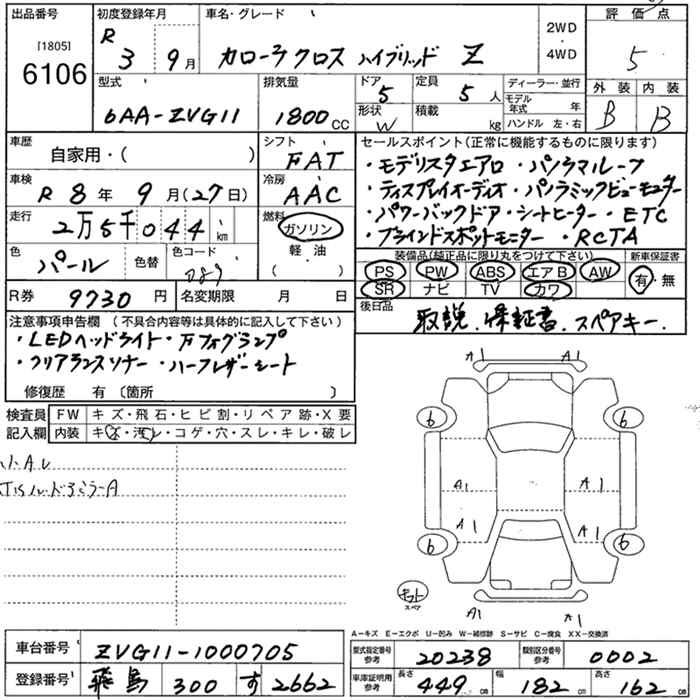 出品番号 初度登録年月 車名・グレード 2WD・4WD 評価点
[1805]
6106
R 3年 9月
カローラクロス ハイブリッド Z
5
型式 排気量 ドア 定員 ディーラー・並行 外装 内装
6AA-ZVG11 1800CC 5 5人 モデル年式 年 B B
形状 W 積載 kg ハンドル 左・右
車歴 自家用・( ) シフト FAT
セールスポイント(正常に機能するものに限ります)
・モデリスタエアロ ・パノラマルーフ
・ディスプレイオーディオ ・パノラミックビューモニター
・パワーバックドア ・シートヒーター ・ETC
・ブラインドスポットモニター ・RCTA
車検 R 8年 9月(27日) 冷房 AAC
走行 2万5千044km 燃料 ガソリン
軽油
( )
色 パール 色替 色コード 089
装備品(純正品に限り丸をつけて下さい) 新車保証書
PS PW ABS エアB AW 有・無
SR ナビ TV カワ
R券 9730円 名変期限 月 日
後日品 取説、保証書、スペアキー.
注意事項申告欄 (不具合内容等は具体的に記入して下さい)
・LEDヘッドライト ・Fフォグランプ
・クリアランスソナー ・ハーフレザーシート
修復歴 有 〔箇所 〕
検査員記入欄 FW キズ・飛石・ヒビ割・リペア跡・X要
内装 キズ・汚レ・コゲ・穴・スレ・キレ・破レ
A1 A1
6 6
A1 A1
A1 A1
6 6
スペア
A1 A1
A-キズ E-エクボ U-凹み W-補修跡 S-サビ C-腐食 XX-交換済
車台番号 ZVG11-1000705
型式指定番号 参考 20238 類別区分番号 参考 0002
登録番号 飛鳥 300 す 2662
車庫証明用 参考 長さ 449cm 幅 182cm 高さ 162cm